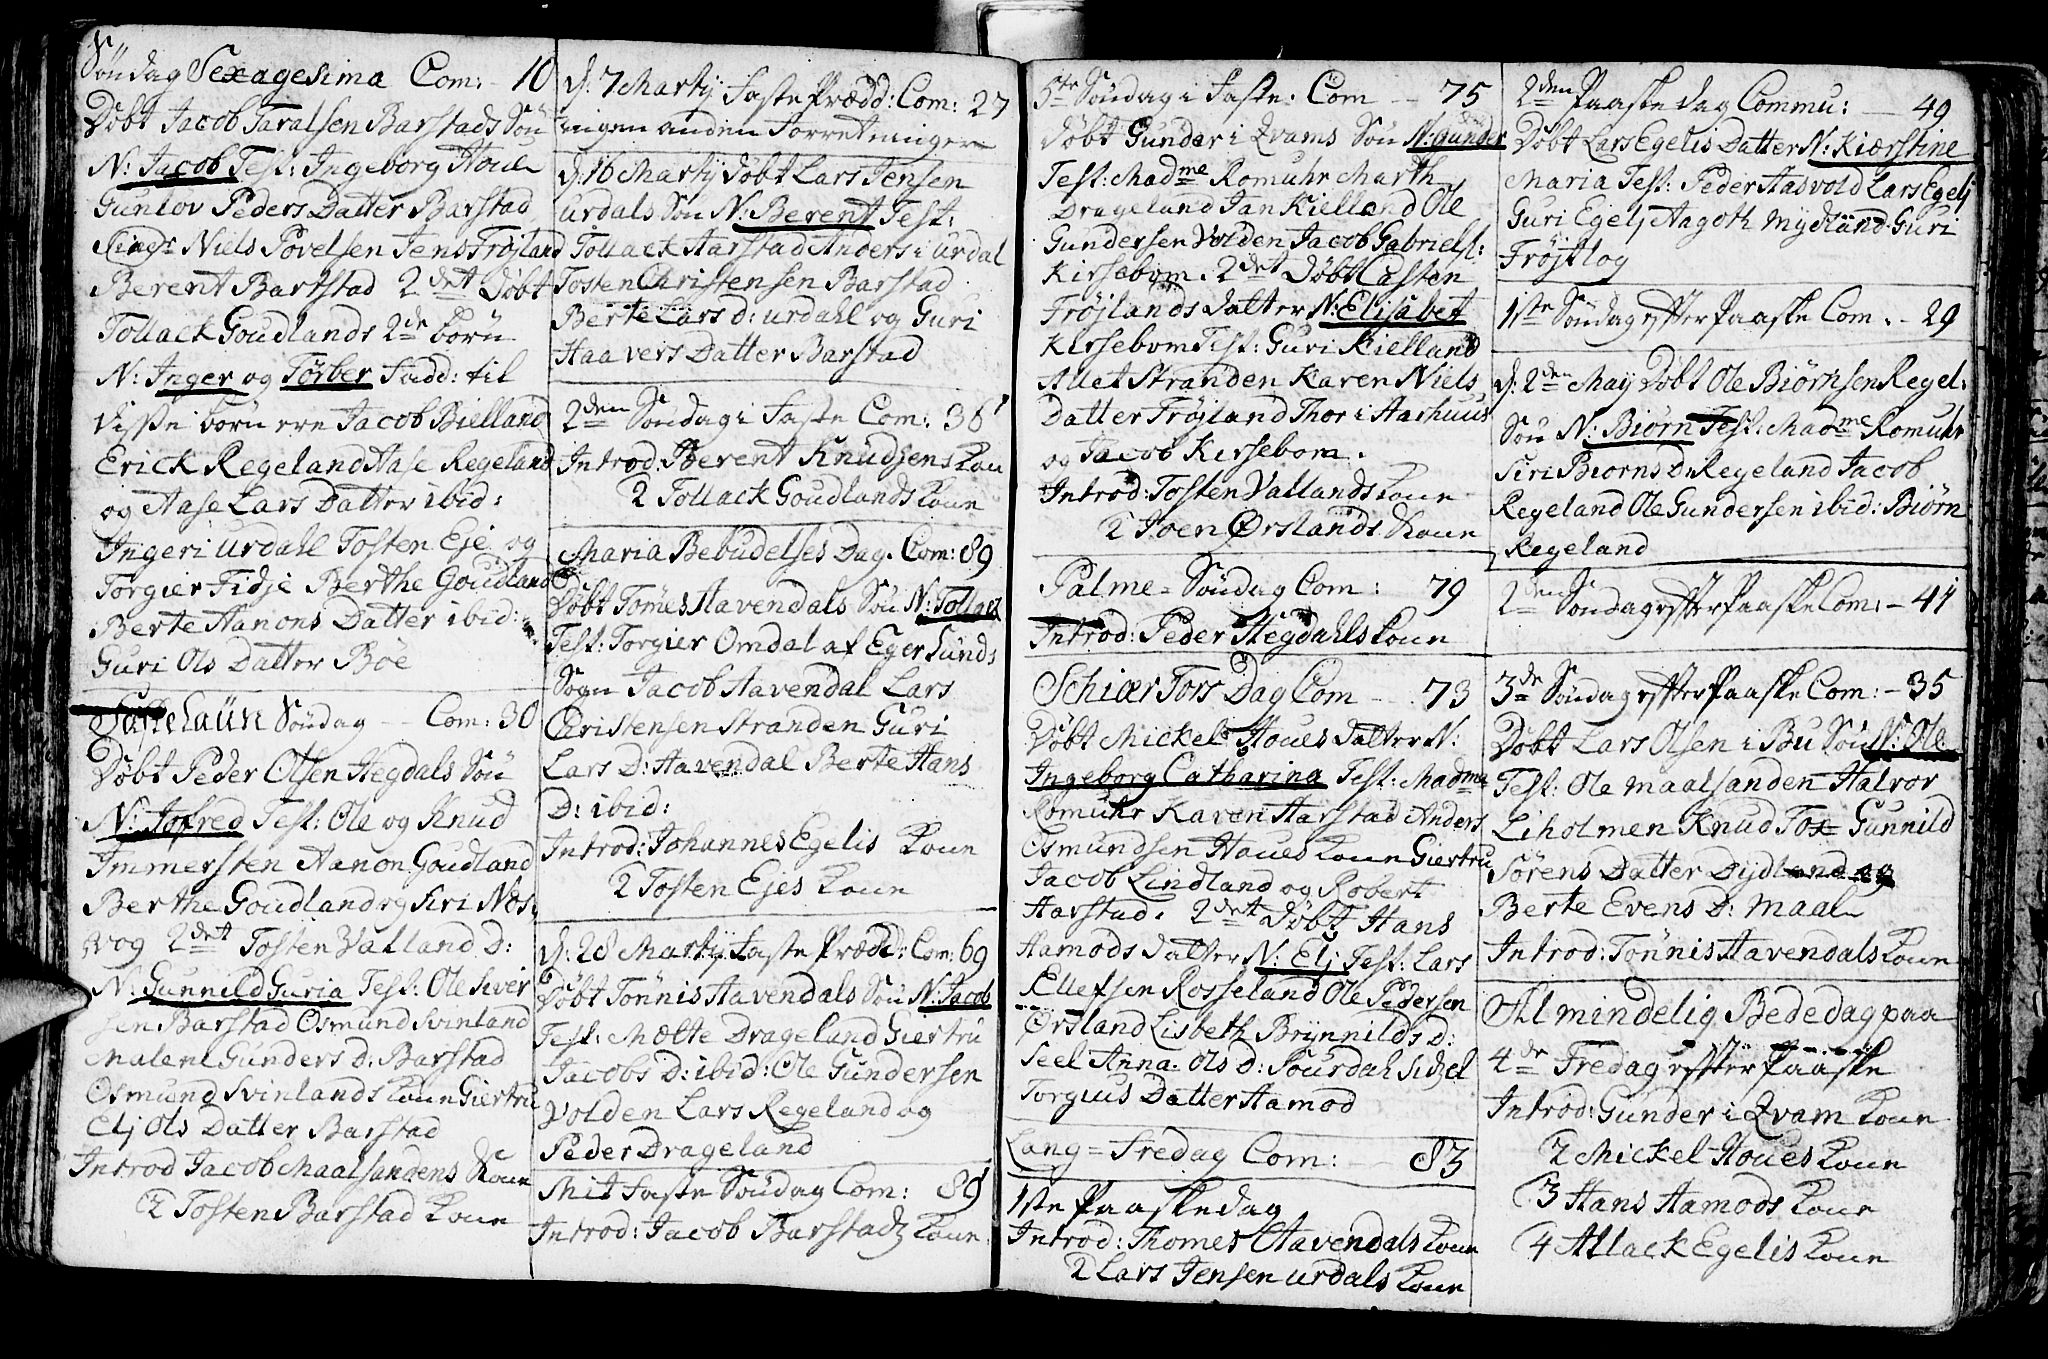 Söndag Sexagesima Com: - 10
Döbt Jacob Taralsen Barstads Sön
N: Jacob Test: Ingeborg Houe
Gunlov Peders Datter Barstad
Niels Povelsen Jens Fröjland
Berent Bartstad 2det Döbt
Tollack Goudlands 2de börn
N: Inger og Törber fadd: til
disse börn ere Jacob Bielland
Erick Regeland Aase Regeland
og Aase Lars Datter ibid:
Inger i urdahl Tosten Eje og
Torgier Fidje Berthe Goudland
Berte Aanons Datter ibid:
Guri Ols Datter Böe
Fastelaün Söndag - - Com: 30
Döbt Peder Olsen Hegdals Sön
N: Jofred Test: Ole og Knud
Immersten Aanon Goudland
Berthe Goudland og Siri Nos
vog 2det Tosten Valland D:
N: Gunnild Guria Test: Ole Siver
sen Barstad Osmund Svinland
Malene Gunders d: Barstad
Osmund Svinlands Kone Giertru
Elj Ols Datter Barstad
Introd Jacob Maalsandens Kone
2 Tosten Barstad Kone
d: 7 Martij Faste Prædd: Com: 27
ingen anden Forretninger
d: 16 Martij döbt Lars Jensen
urdals Sön N: Berent Test:
Tollack Aarstad Anders i urdal
Tosten Christensen Barstad
Berte Lars d: urdahl og Guri
Haavers Datter Barstad
2den Söndag i Faste Com: 38
Introd: Berent Knudsens Kone
2 Tollack Goudlands Kone
Maria Bebudelses Dag. Com: 89
Döbt Tomes Aavendals Sön N: Tollack
Test: Torgier Omdal af Egersunds
Sogn Jacob Aavendal Lars
Christensen Stranden Guri
Lars D: Aavendal Berte Hans
D: ibid:
Introd: Johannes Egelis Kone
2 Tosten Ejes Kone
d: 28 Martij Faste Prædd: Com: 69
Döbt Tönnis Aavendals Sön N: Jacob
Test: Mætte Drageland Giertru
Jacobs D: ibid: Ole Gundersen
Volden Lars Regeland og
Peder Drageland
Mit Faste Söndag Com: 89
Introd: Jacob Barstads Kone
5te Söndag i Faste. Com - - 75
döbt Gunder i Qvams Sön N: Gunder
Test: Madme Romuhr Marth
Drageland Jan Kielland Ole
Gundersen Volden Jacob Gabriels:
Kirsebom. 2det Döbt Casten
Fröjlands datter N: Elisabet
Kirsebom Test: Guri Kielland
Allet Stranden Karen Niels
Datter Fröjland Thor i Aarhuus
og Jacob Kirsebom.
Introd: Tosten Vallands Kone
2 Joen Ørslands Kone
Palme = Söndag Com: 79
Introd: Peder Hegdahls Kone
Schiær Tors Dag Com - - 73
Döbt Mickel Houes datter N:
Ingeborg Catharina Test: Madme
Romuhr Karen Aarstad Anders
Osmundsen Houes Kone Giertru
Jacob Lindland og Robert
Aarstad. 2det Döbt Hans
Aamods datter N: Elj Test: Lars
Ellefsen Rosseland Ole Pedersen
Ørsland Lisbeth Brÿnnilds D:
Seel Anna Ols D: Sourdal Sidzel
Torgius Datter Aamod
Lang = Fredag Com: - 83
1ste Paaskedag
Introd: Thomes Aavendals Kone
2 Lars Jensen urdals Kone
2den Paaske dag Commu: - 49
Döbt Lars Egelis Datter N: Kierstine
Maria Test: Peder Aasvold Lars Egelj
Guri Egelj Aagoth Mydland Guri
Fröjtlog
1ste Söndag efter Paaske Com. - 29
d: 2den Maij Döbt Ole Biörnsen Regel:
Sön N: Biörn Test: Madme Romuhr
Siri Biorns D: Regeland Jacob
Regeland Ole Gundersen ibid: Biörn
Regeland
2den Söndag efter Paaske Com: - 41
3de Söndag efter Paaske Com: - 35
Döbt Lars Olsen i Bu Sön N: Ole
Test: Ole Maalsanden Halvor
Liholmen Knud Tox Gunnild
Sörens Datter Dydland og
Berte Evens D: Maal
Introd: Tönnis Aavendals Kone
Almindelig Bededag paa
4de Fredag efter Paaske
Introd: Gunder i Qvam Kone
2 Mickel Houes Kone
3 Hans Aamods Kone
4 Allack Egelis Kone